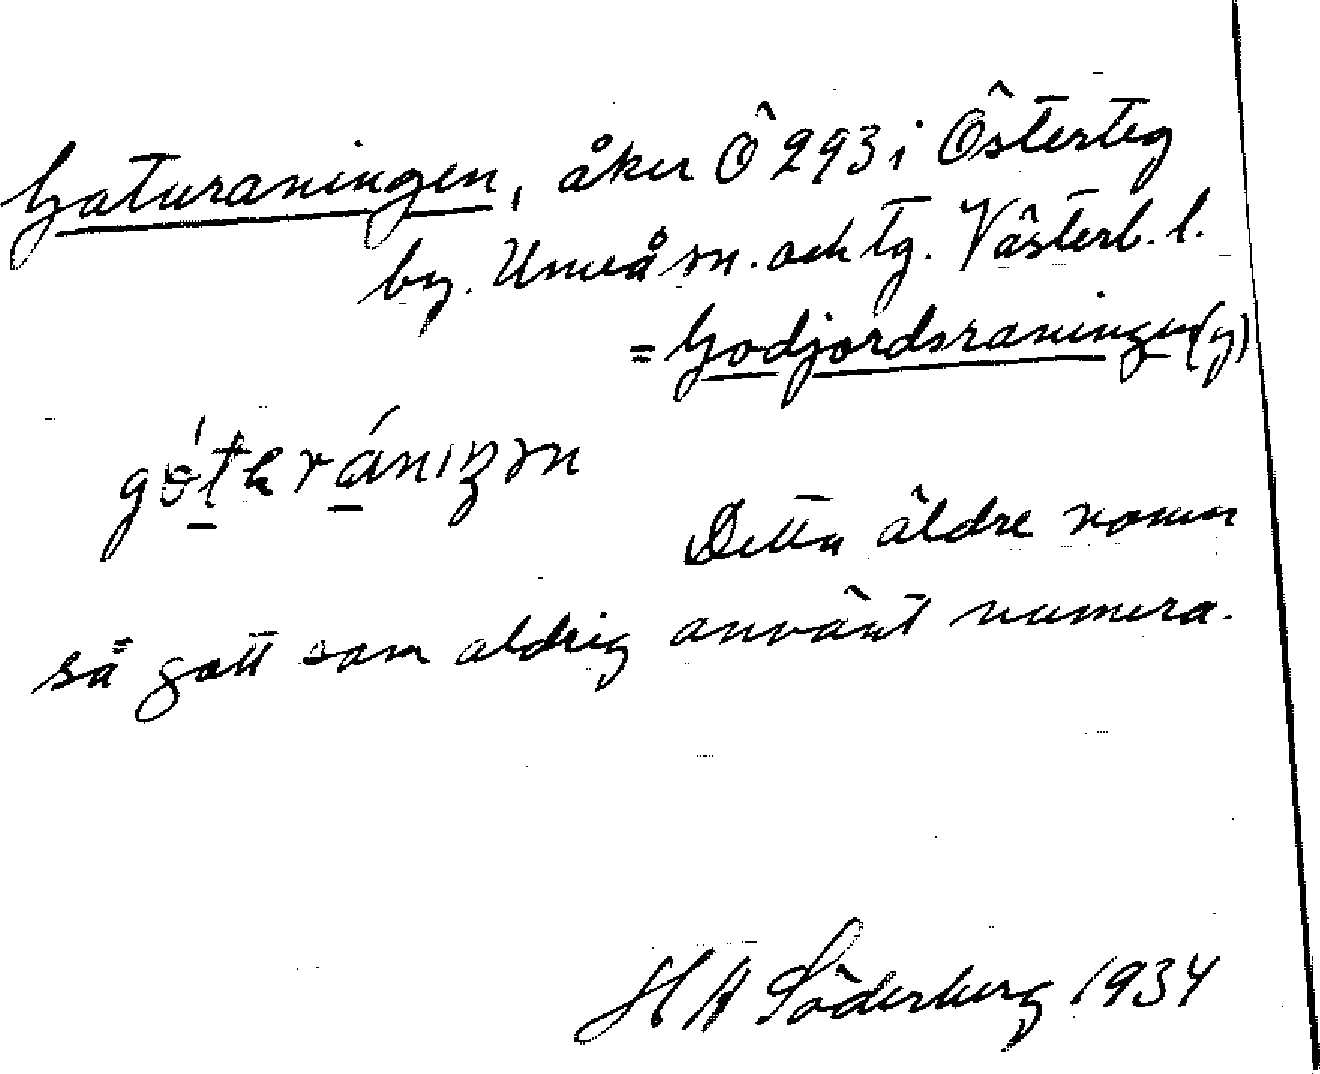 Gaturaningen, åker Ö 293 i Österteg
by. Umeå sn. och tg. Västerb. l.
= Godjordsraningen (y)
Detta äldre namn
så gott som aldrig använt numera.
H A Söderberg 1934